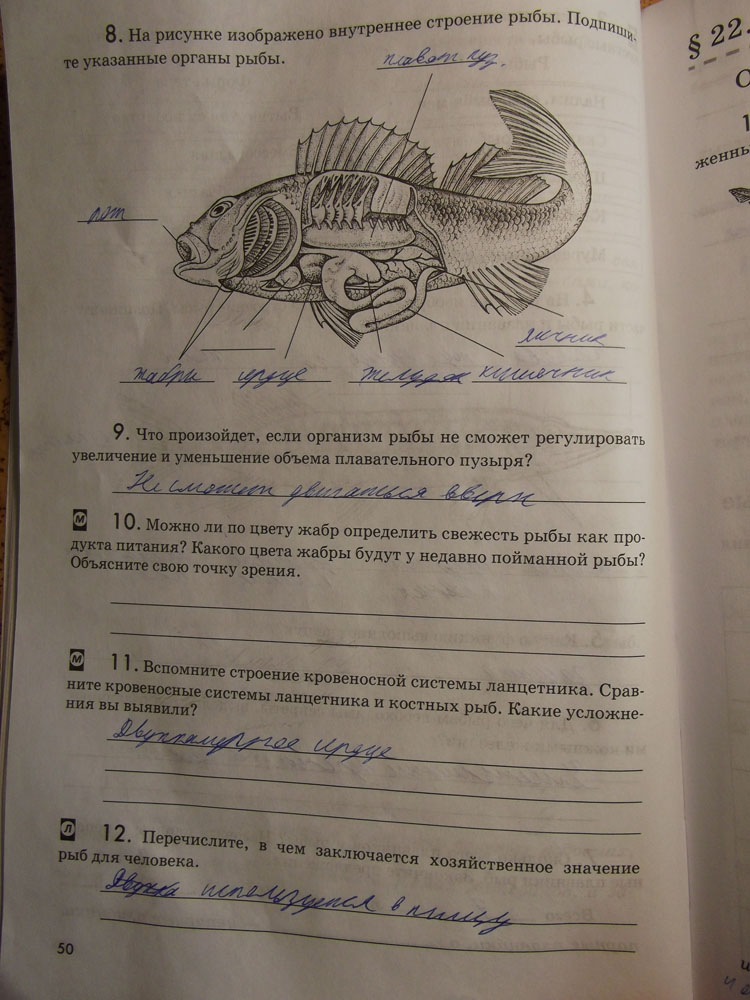 8. На рисунке изображено внутреннее строение рыбы. Подпиши-
те указанные органы рыбы.
плават. пуз.
рот
яичник
жабры сердце желудок кишечник
9. Что произойдет, если организм рыбы не сможет регулировать
увеличение и уменьшение объема плавательного пузыря?
Не сможет двигаться вверх
м 10. Можно ли по цвету жабр определить свежесть рыбы как про-
дукта питания? Какого цвета жабры будут у недавно пойманной рыбы?
Объясните свою точку зрения.
м 11. Вспомните строение кровеносной системы ланцетника. Срав-
ните кровеносные системы ланцетника и костных рыб. Какие усложне-
ния вы выявили?
Двухкамерное сердце
л 12. Перечислите, в чем заключается хозяйственное значение
рыб для человека.
используется в пищу
50
§ 22.
О
1
женны